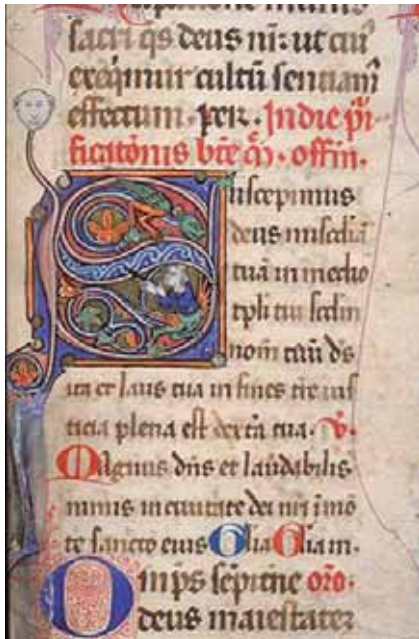 sacri qs deus nr̄: ut cui'
exeqimur cultū sentiam'
effectum · per · In die pi
ficatōnis bte m̄ · offm̄ ·
Suscepimus
deus miscdiā
tuā in medio
tpli tui scdm
nom̄ tuū ds
ita et laus tua in fines tr̄e ius
ticia plena est dext̄a tua · v̄ ·
Magnus dn̄s et laudabilis
nimis in ciuitate dei nr̄i ī mō
te sancto eius
Omp̄s sēpitne oro ·
deus maiestatē